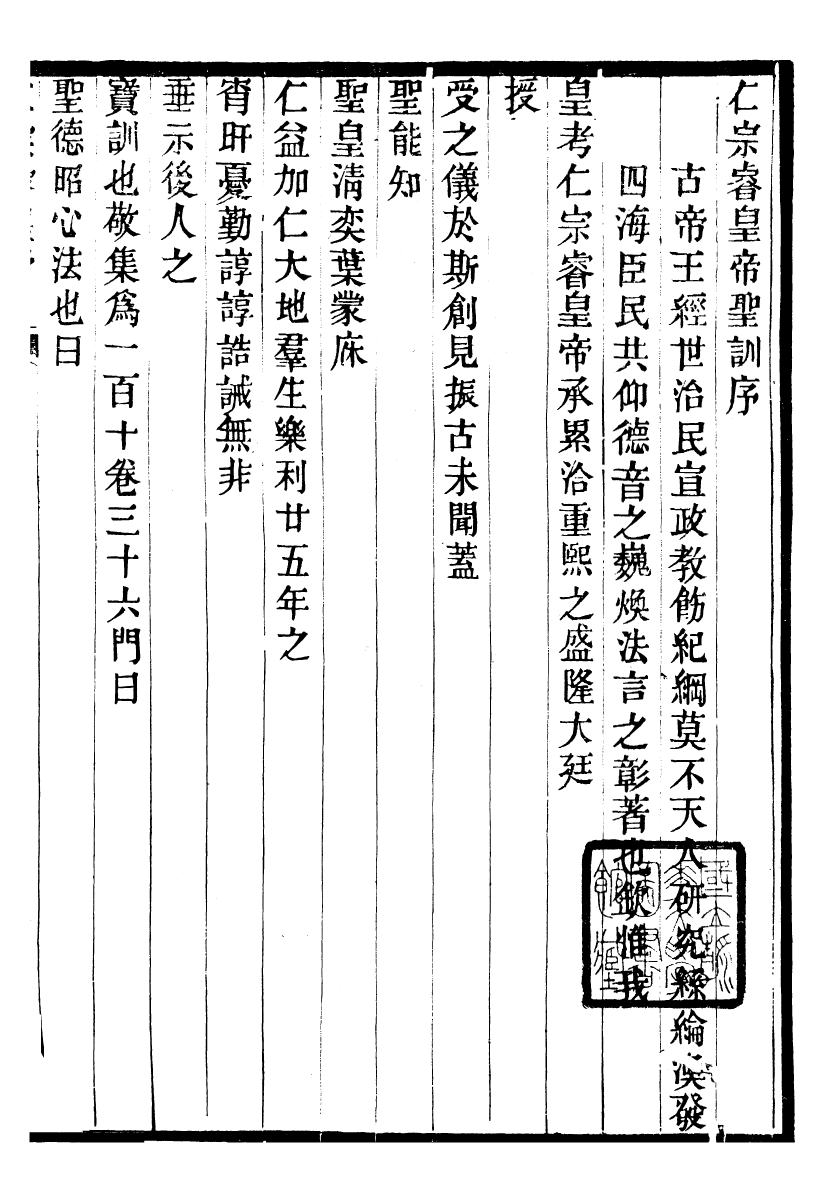 仁宗睿皇帝聖訓序
古帝王經世治民宣政教飭紀綱莫不天人研究絲綸渙發
四海臣民共仰德音之巍煥法言之彰著也欽惟我
皇考仁宗睿皇帝承累洽重熙之盛隆大廷
授
受之儀於斯創見振古未聞蓋
聖能知
聖皇清奕葉蒙庥
仁益加仁大地羣生樂利廿五年之
宵旰憂勤諄諄誥誡無非
垂示後人之
寶訓也敬集爲一百十卷三十六門曰
聖德昭心法也曰